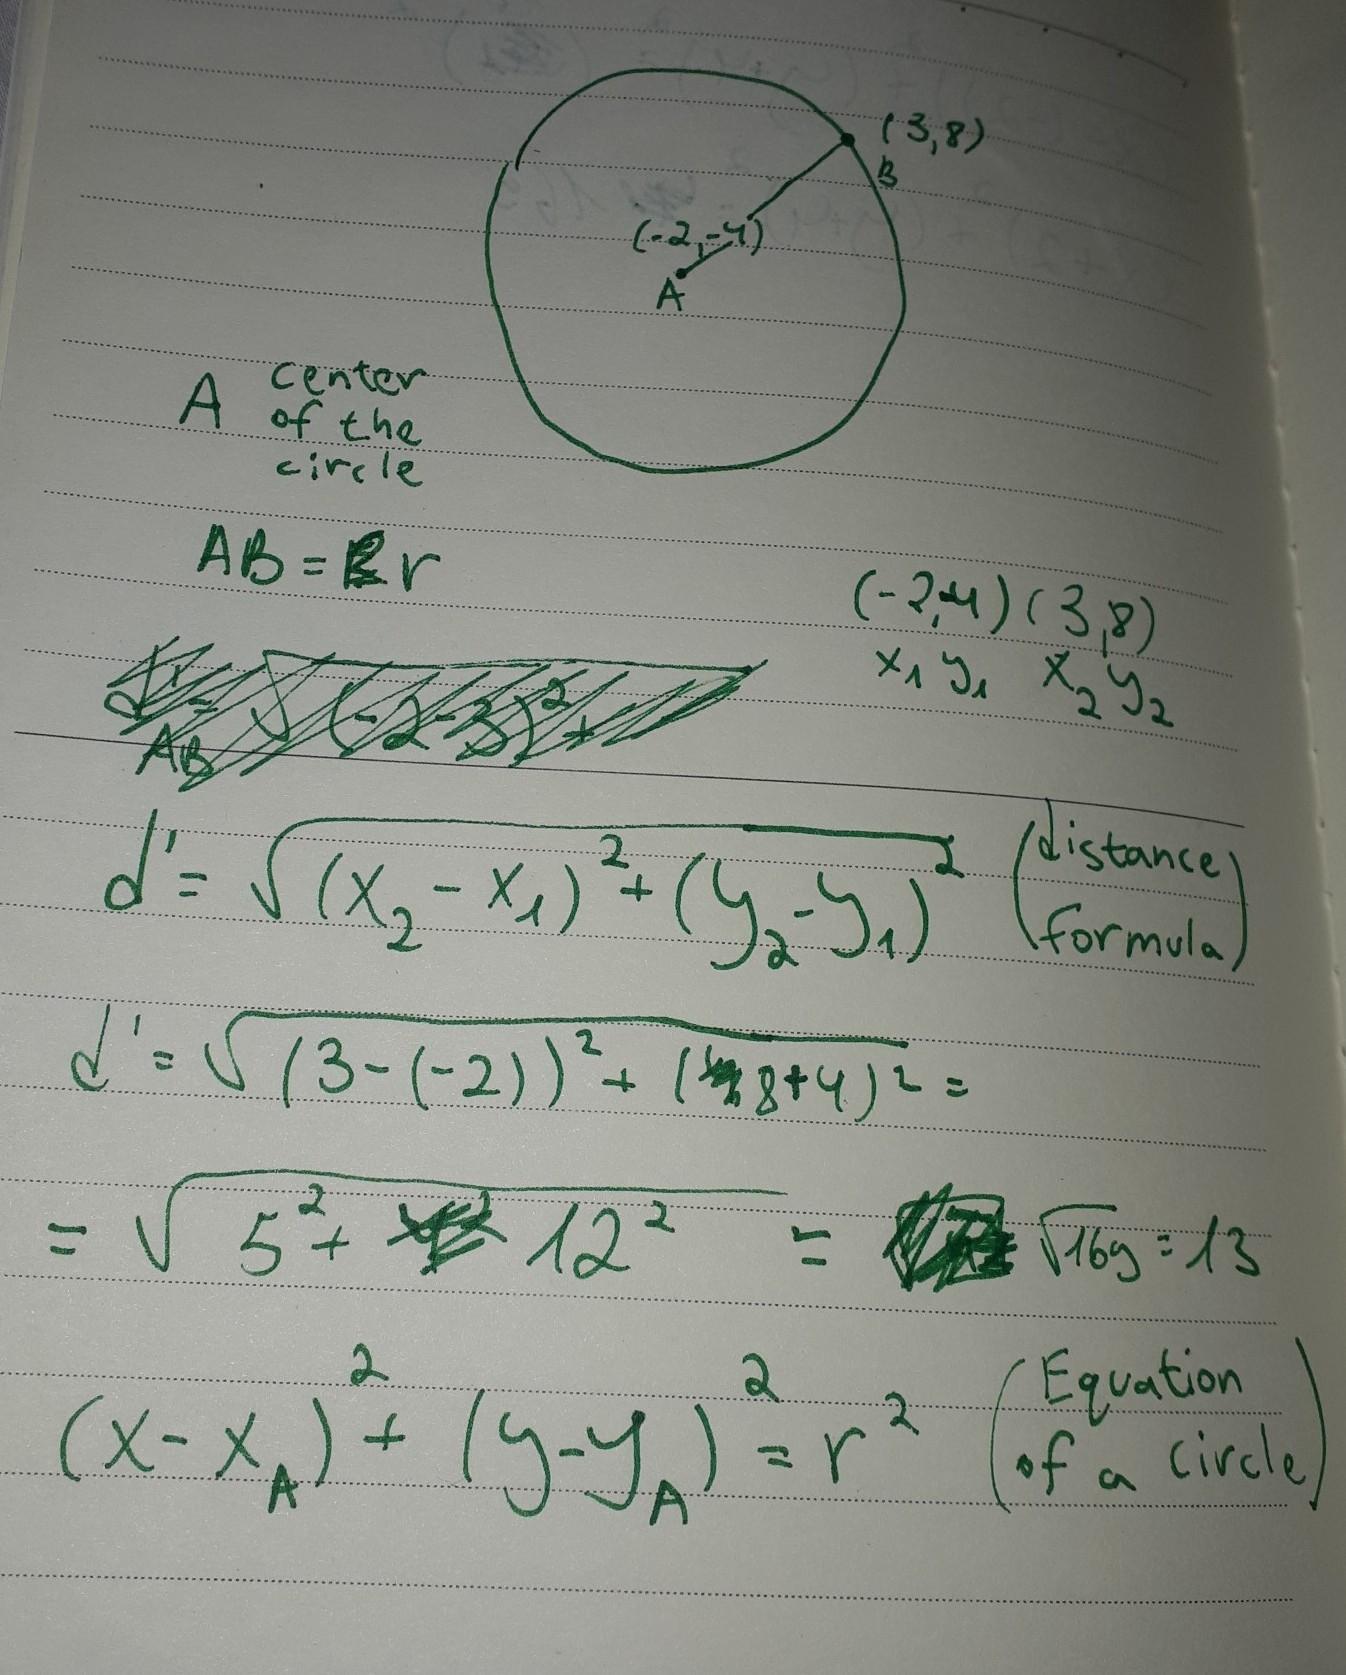 (3,8)
B
(-2,-4)
A
A center
of the
circle
AB = r
(-2,-4) (3,8)
x₁ y₁ x₂ y₂
d' = √(-2-3)² +
AB
d' = √(x₂ - x₁)² + (y₂ - y₁)² (distance
formula)
d' = √(3-(-2))² + (8+4)² =
= √5² + 12² = √169 = 13
(x - x_A)² + (y - y_A)² = r² (Equation
of a circle)